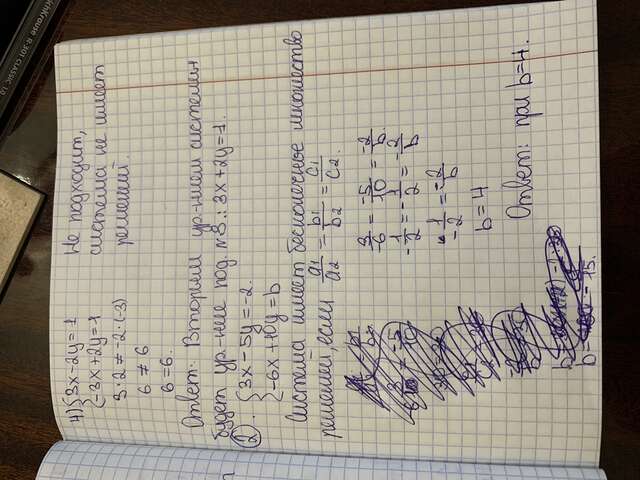 4) { 3x - 2y = 1
{ -3x + 2y = 1
Не подходит,
система не имеет
решений.
3·2 ≠ -2·(-3)
6 ≠ 6
6 = 6
Ответ: Вторым ур-нием системы
будет ур-ние под №3.: 3x + 2y = 1.
2. { 3x - 5y = -2
{ -6x + 10y = b
Система имеет бесконечное множество
решений, если a1/a2 = b1/b2 = c1/c2.
3/-6 = -5/10 = -2/b
-1/2 = -1/2 = -2/b
1/-2 = -2/b
b = 4
Ответ: при b = 4.